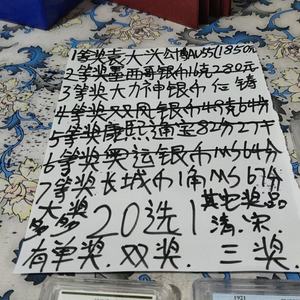 1等奖袁大头公博AU55(1850元
2等奖墨西哥银币16克280元
3等奖大力神银币
4等奖双凤银币48克64分
5等奖康熙通宝82分27
6等奖奥运银币MS64分
7等奖长城币1角MS67分
大奖多多 20选1 其它奖品清.宋
有单奖.双奖.三奖.